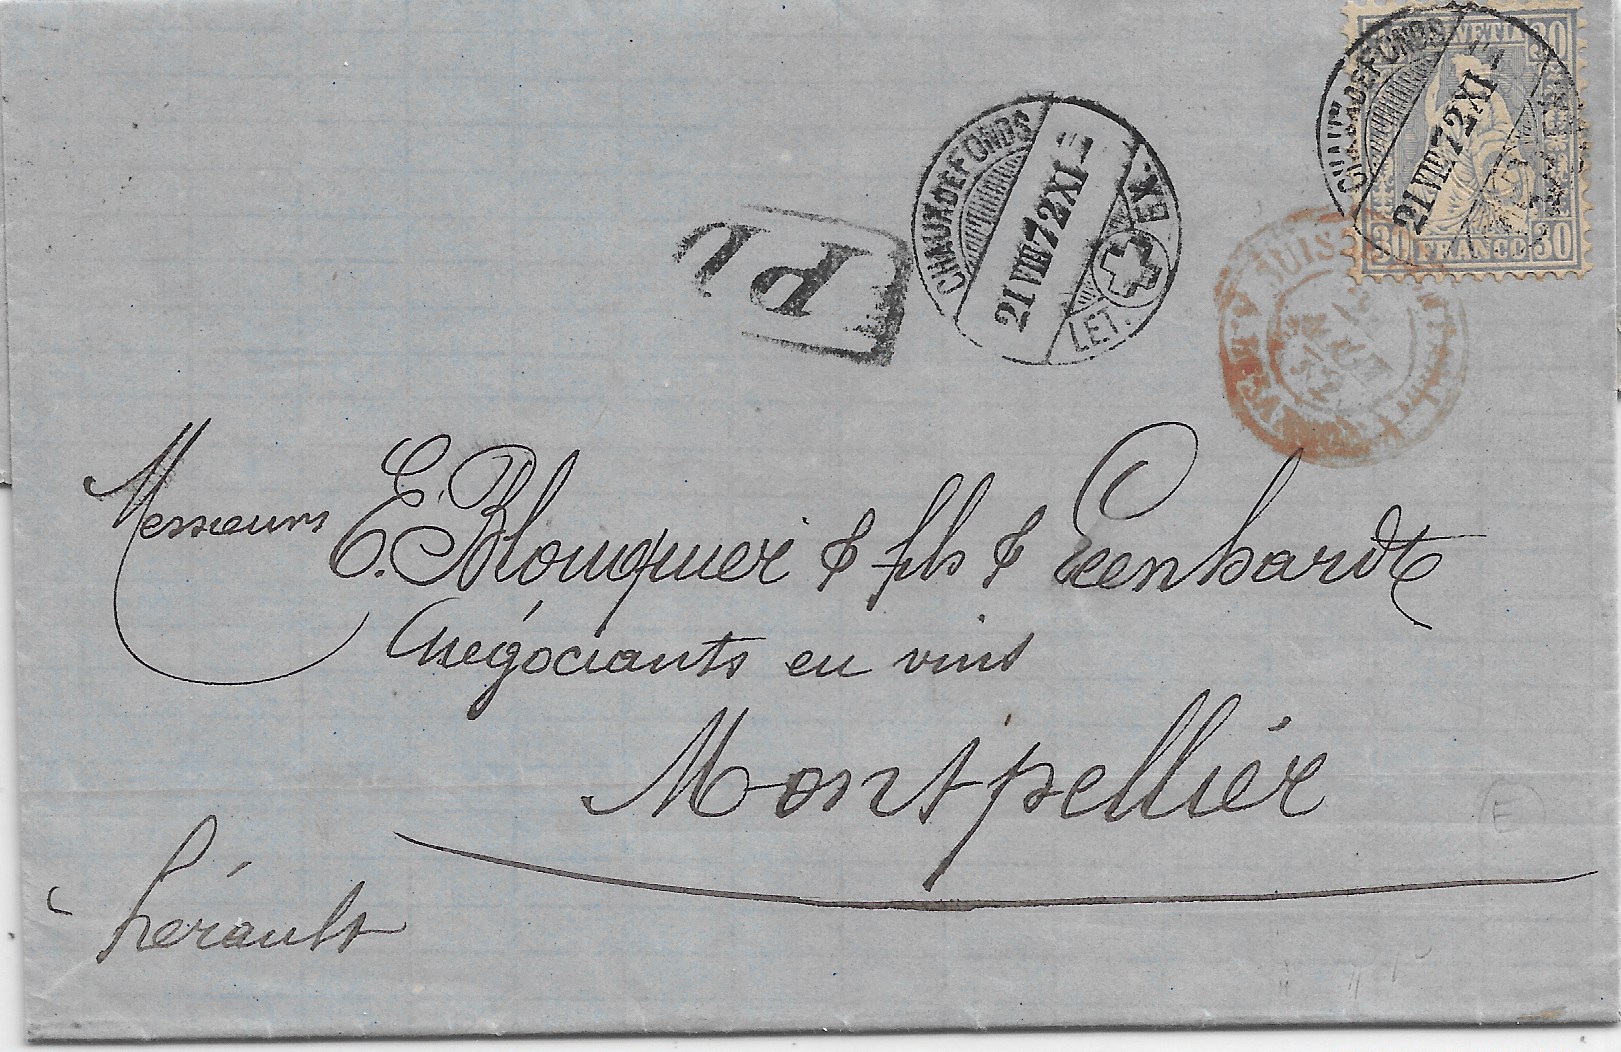 HELVETIA
30 30
30 FRANCO 30
CHAUX DE FONDS
21 VIII 72 XI
CHAUX DE FONDS
21 VIII 72 XI
EX.
LET.
SUISSE
PD
Messieurs E. Blouquier & fils & Leenhardt
Négociants en vins
Montpellier
hérault
E